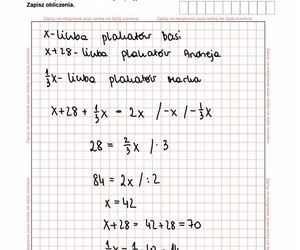 Zapisz obliczenia.
Zapisy na marginesie poza ramką nie będą oceniane
x - liczba plakatów Basi
x+28 - liczba plakatów Andrzeja
1/3x - liczba plakatów Marka
x+28+1/3x = 2x /-x /-1/3x
28 = 2/3x /·3
84 = 2x /:2
x = 42
x+28 = 42+28 = 70